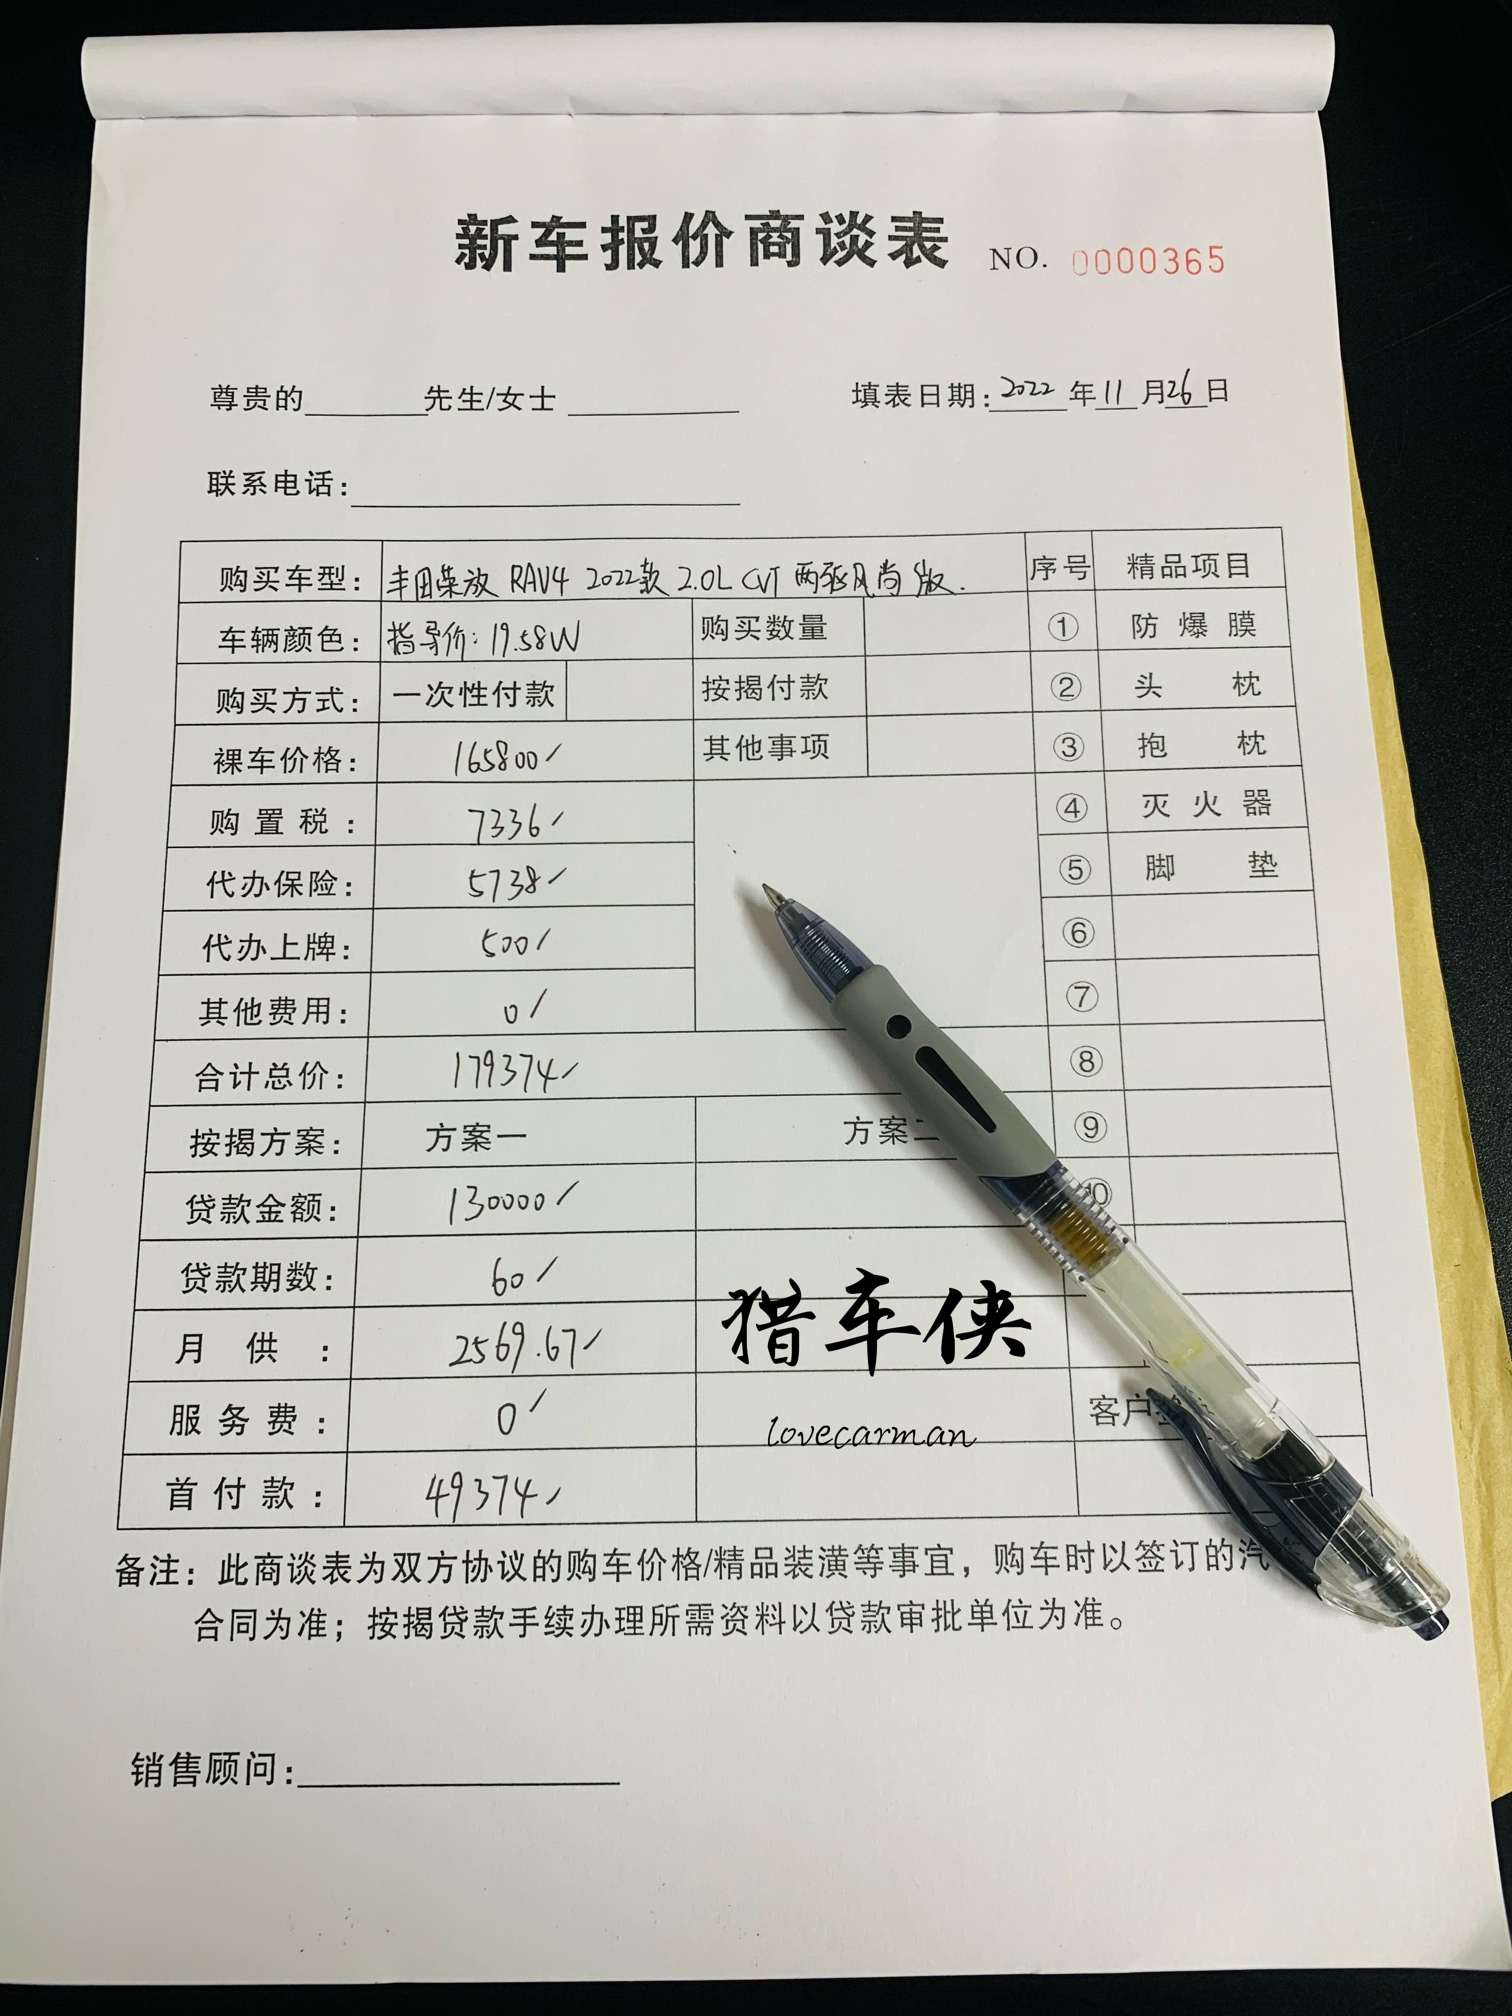 新车报价商谈表 NO. 0000365
尊贵的 先生/女士 填表日期: 2022 年 11 月 26 日
联系电话:
购买车型: 丰田荣放 RAV4 2022款 2.0L CVT 两驱风尚版. 序号 精品项目
车辆颜色: 指导价: 19.58W 购买数量 ① 防爆膜
购买方式: 一次性付款 按揭付款 ② 头枕
裸车价格: 165800/ 其他事项 ③ 抱枕
购置税: 7336/ ④ 灭火器
代办保险: 5738/ ⑤ 脚垫
代办上牌: 500/ ⑥
其他费用: 0/ ⑦
合计总价: 179374/ ⑧
按揭方案: 方案一 方案二 ⑨
贷款金额: 130000/ ⑩
贷款期数: 60/
月供: 2569.67/ 猎车侠
服务费: 0/ lovecarman 客户
首付款: 49374/
备注: 此商谈表为双方协议的购车价格/精品装潢等事宜，购车时以签订的汽
合同为准；按揭贷款手续办理所需资料以贷款审批单位为准。
销售顾问: